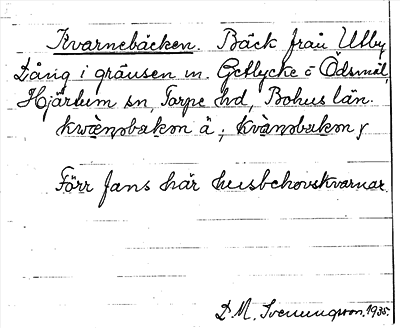 Kvarnebäcken. Bäck från Utby
Dång i gränsen m. Getlycke o Ödsmål,
Hjärtum sn, Torpe hd, Bohus län.
kwènəbɛkən ä; kvànəbɛkən y
Förr fans här husbehovskvarnar.
D. M. Svenungsson. 1935.